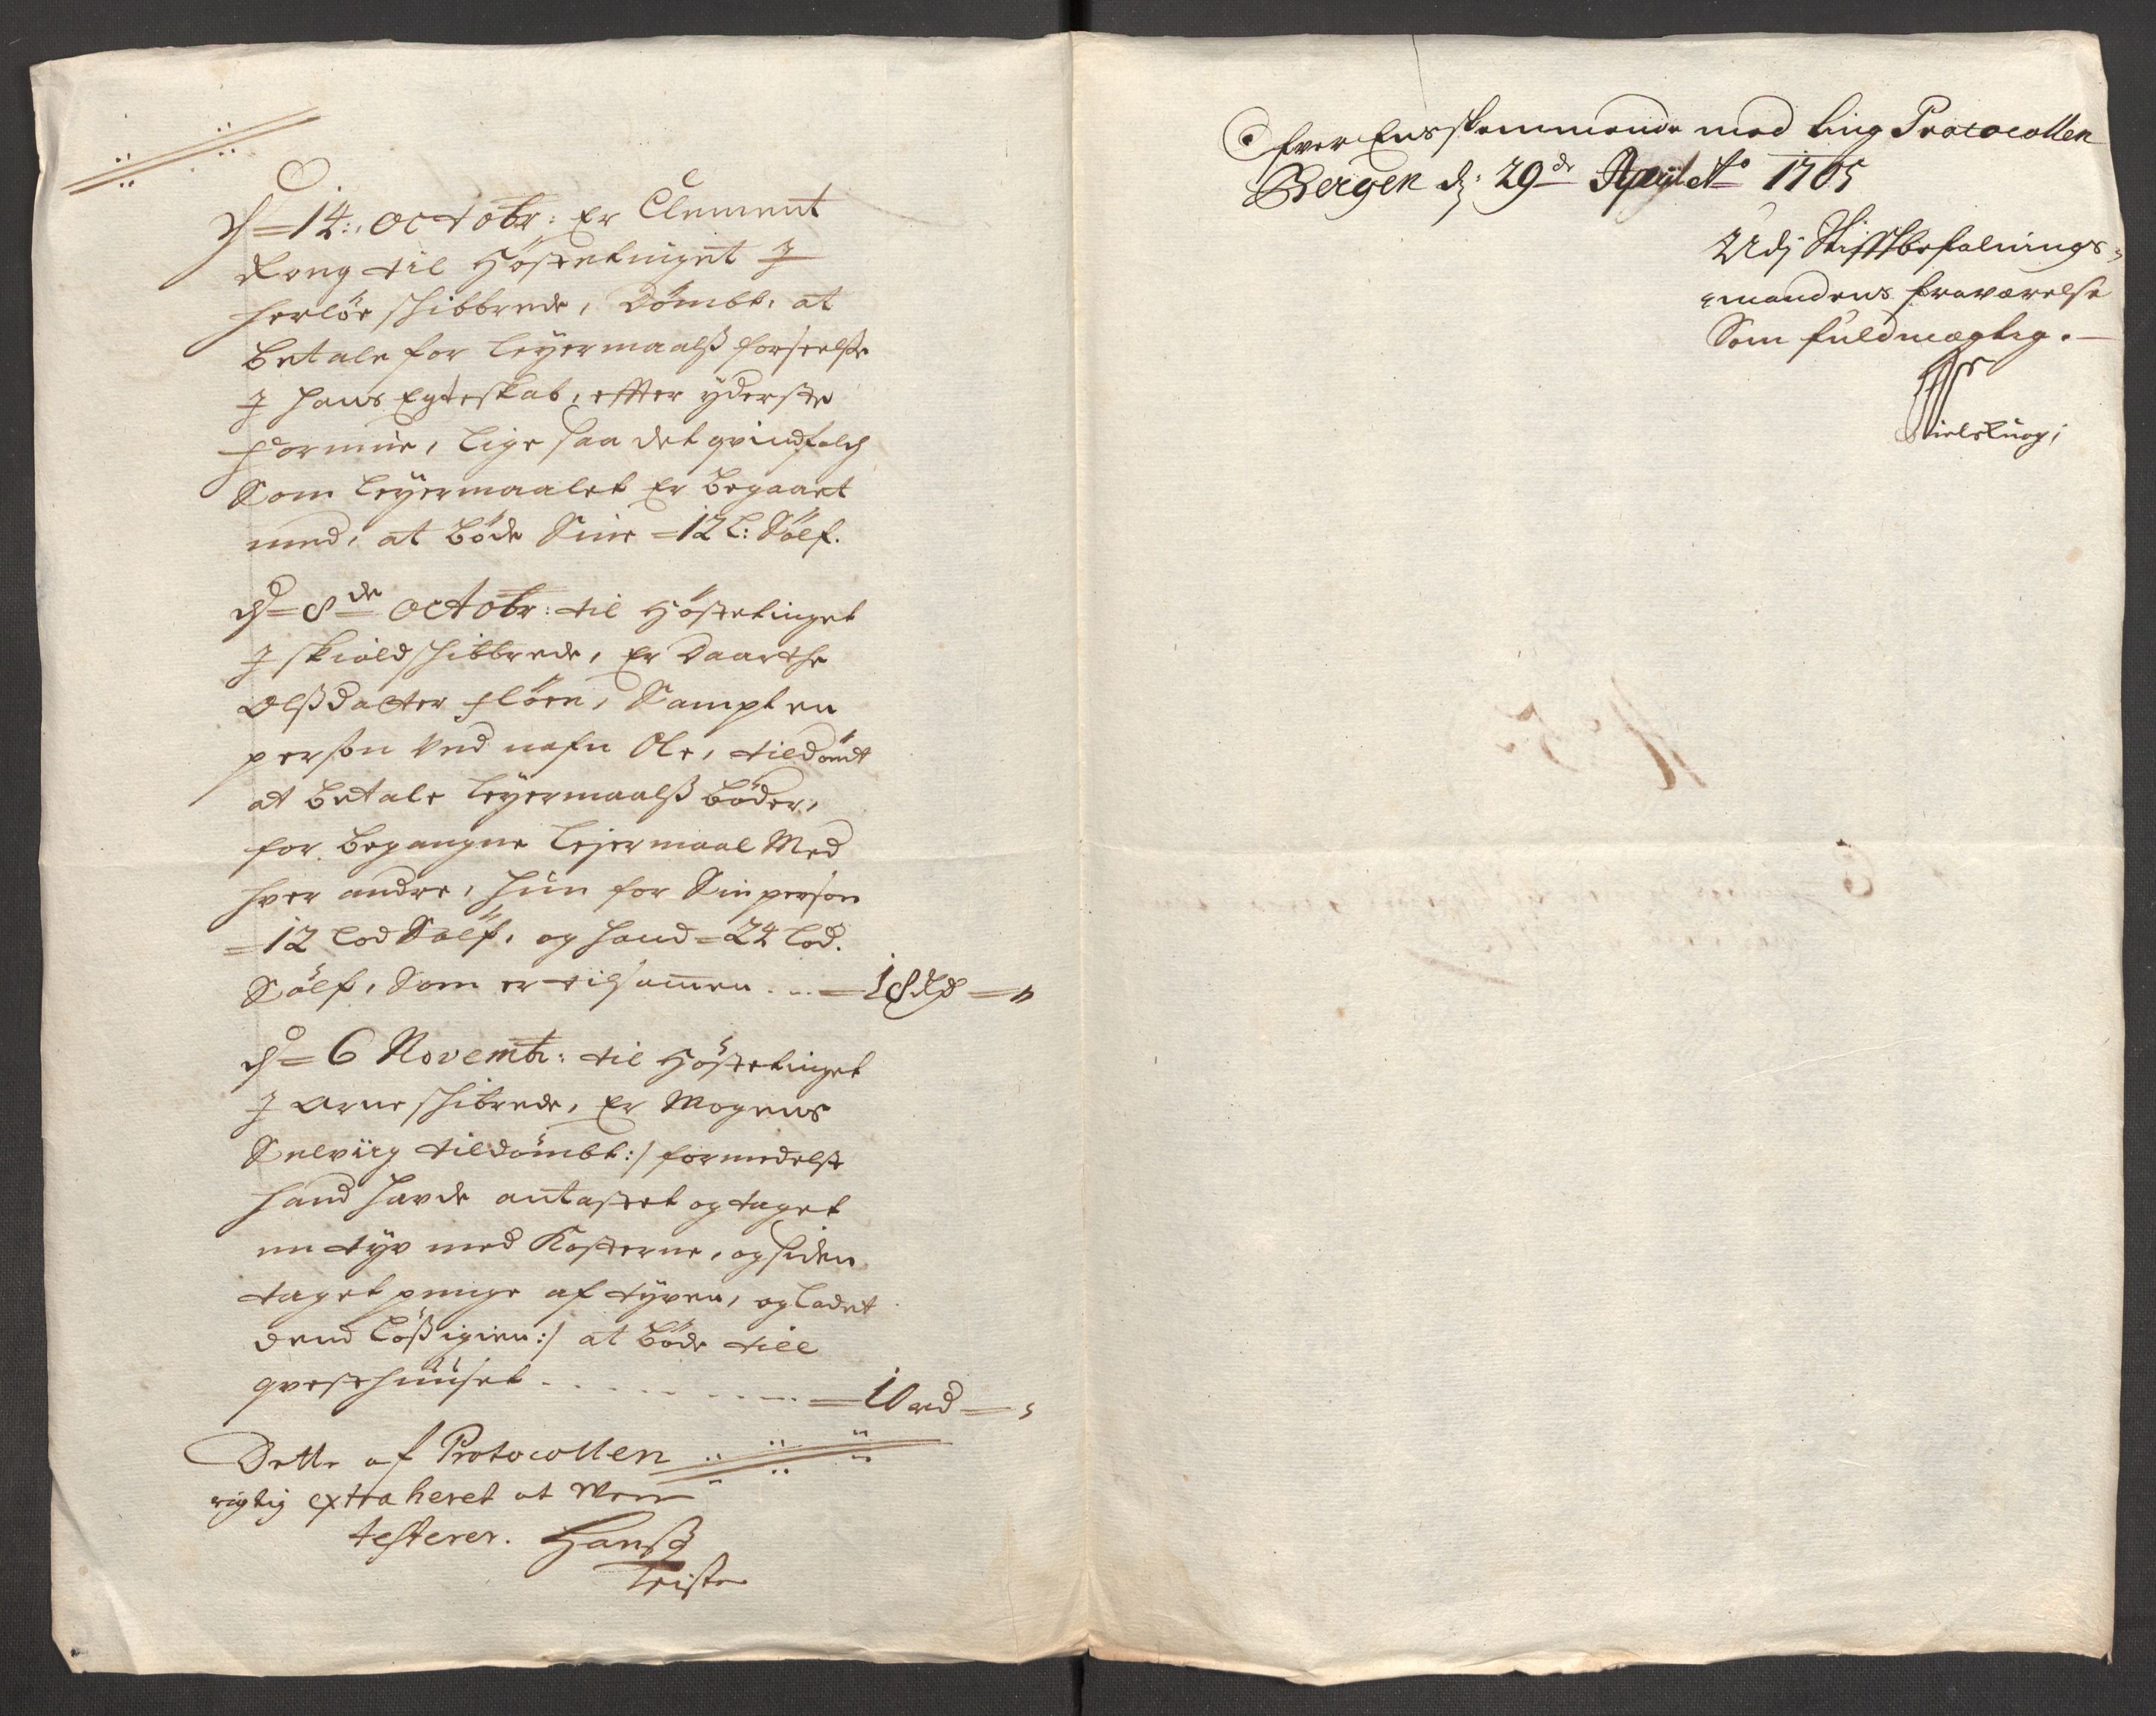 d = 14:, octobr: Er Clement
Rong til Høstetinget J
Herløe schibbrede, Dømbt, at
betale for leyermaalß forseelse
J hans Egteskab, effter yderste
formue, lige saa det qvindfolch
Som leyermaalet Er begaaet
med, at bøde Sine = 12 l: Sølf.
d = 8de octobr: til Høstetinget
J skiold schibbrede, Er Daarthe
Olßdatter fløen, Sampt en
person ved nafn Ole, tildømt
at betale leyermaalß bøder,
for begangne lejermaal Med
hver andre, hun for Sin person
= 12 lod Sølf, og hand = 24 lod.
Sølf, Som er tilsamen ... = 18 rd = "
d = 6 Novembr: til Høstetinget
J Arne schibrede, Er Mogens
Selviig tildømbt :/ formedelst
hand hafde antastet og taget
en tyv med Kosterne, og siden
taget penge af tyven, og ladet
dend løß igien :/ at bøde till
qvesthuuset - - - - - - - = 10 rd = "
Dette af Protocollen
rigtig extraheret at were
testerer. Hanß
Teiste
Ofver Ens stemmende med ting Protocollen
Bergen dj: 29de April Ao 1705
Udj Stifftbefalnings-
mandens fraværelse
Som fuldmægtig.